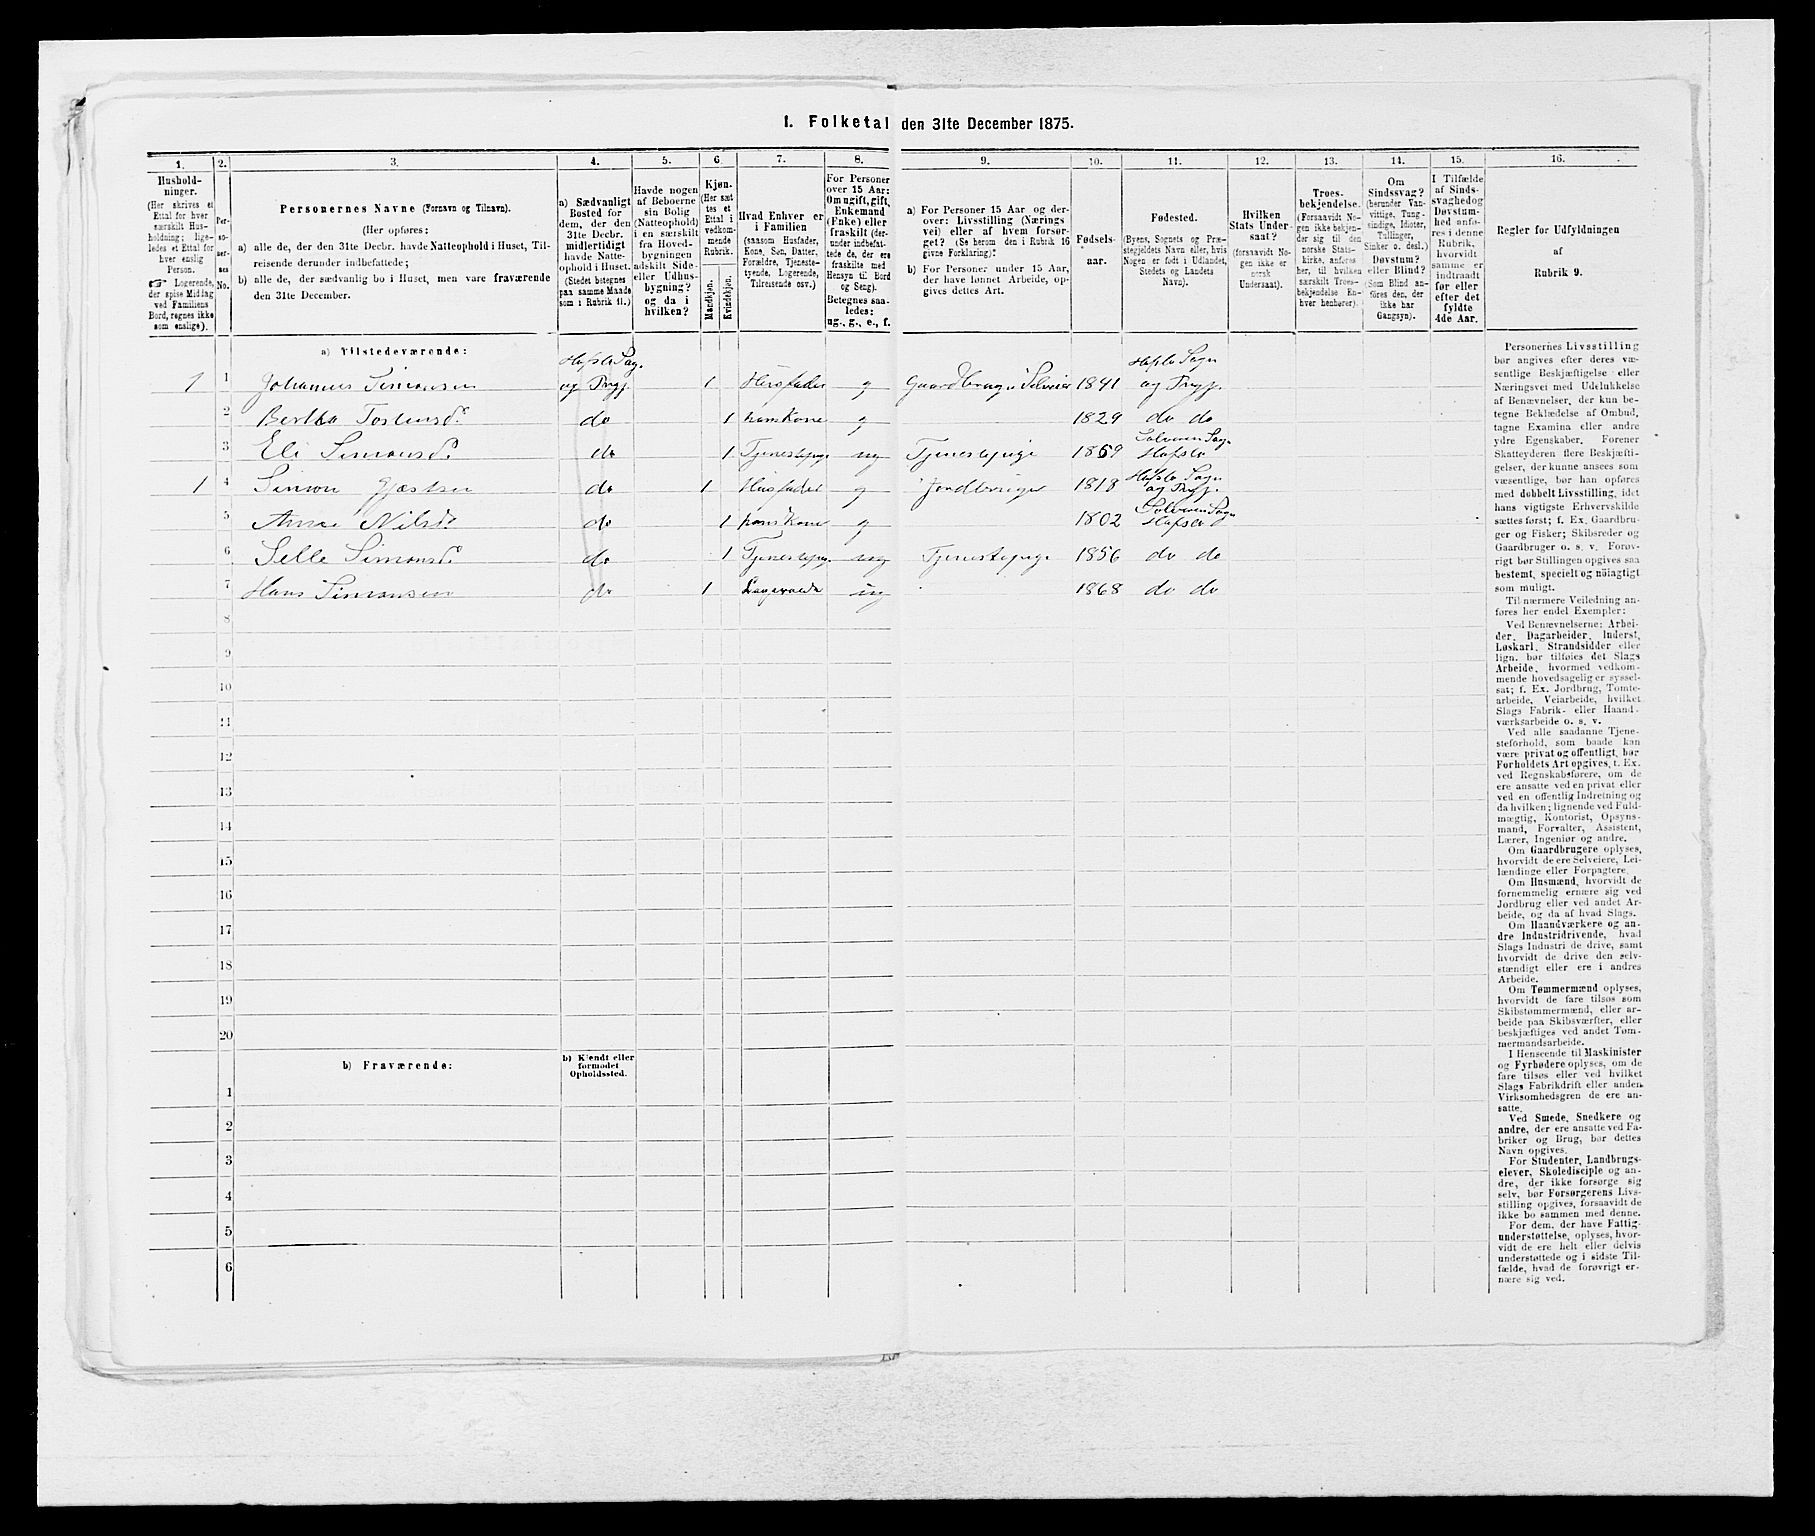 I. Folketal den 31te December 1875.
1. 2. 3. 4. 5. 6. 7. 8. 9. 10. 11. 12. 13. 14. 15. 16.
Hushold-
ninger.
(Her skrives et
Ettal for hver
særskilt Hus-
holdning; lige-
ledes et Ettal for
hver enslig
Person.
☞ Logerende,
der spise Middag
ved Familiens
Bord, regnes ikke
som enslige).
Per-
so-
ner-
nes
No.
Personernes Navne (Fornavn og Tilnavn).
(Her opføres:
a) alle de, der den 31te Decbr. havde Natteophold i Huset, Til-
reisende derunder indbefattede;
b) alle de, der sædvanlig bo i Huset, men vare fraværende
den 31te December.
a) Sædvanligt
Bosted for
dem, der den
31te Decbr.
midlertidigt
havde Natte-
ophold i Huset.
(Stedet betegnes
paa samme Maade
som i Rubrik 11.)
Havde nogen
af Beboerne
sin Bolig
(Natteophold)
i en særskilt
fra Hoved-
bygningen
adskilt Side-
eller Udhus-
bygning?
og da i
hvilken?
Kjøn.
(Her sæt
tes et
Ettal i
vedkom-
mende
Rubrik.
Mandkjøn.
Kvindekjøn.
Hvad Enhver er
i Familien
(saasom Husfader,
Kone, Søn, Datter,
Forældre, Tjeneste-
tyende, Logerende,
Tilreisende osv.)
For Personer
over 15 Aar:
Om ugift, gift,
Enkemand
(Enke) eller
fraskilt (der-
under indbefat-
tede de, der ere
fraskilte med
Hensyn til Bord
og Seng).
Betegnes saa-
ledes:
ug., g., e., f.
a) For Personer 15 Aar og der-
over: Livsstilling (Nærings
vei) eller af hvem forsør-
get? (Se herom den i Rubrik 16
givne Forklaring);
b) For Personer under 15 Aar,
der have lønnet Arbeide, op-
gives dettes Art.
Fødsels-
aar.
Fødested.
(Byens, Sognets og Præ-
stegjeldets Navn eller, hvis
Nogen er født i Udlandet,
Stedets og Landets
Navn).
Hvilken
Stats Under-
saat?
(forsaavidt No-
gen ikke er
norsk
Undersaat).
Troes-
bekjendelse.
(Forsaavidt No-
gen ikke bekjen-
der sig til den
norske Stats-
kirke, anføres
her, til hvilken
særskilt Troes-
bekjendelse En-
hver henhører).
Om
Sindssvag?
(herunder Van-
vittige, Tung-
sindige, Idioter,
Tullinger,
Sinker o. desl.)
Døvstum?
eller Blind?
(Som Blind an-
føres den, der
ikke har
Gangsyn).
I Tilfælde
af Sinds-
svaghed og
Døvstum-
hed anfø-
res i denne
Rubrik,
hvorvidt
samme er
indtraadt
før eller
efter det
fyldte
4de Aar.
Regler for Udfyldningen
af
Rubrik 9.
a) Tilstedeværende:
1 1 Johannes Simonsen Hafslo Sog. og Prgj. 1 Husfader g Gaardbruger Selveier 1841 Hafslo Sogn og Prgj.
2 Bertha Tostensd. do 1 hans Kone g 1829 do do
3 Eli Simonsd. do 1 Tjenestepige ug Tjenestepige 1859 Solvorn Sogn Hafslo
1 4 Simon Gjæstsen do 1 Husfader g Jordbruger 1818 Hafslo Sogn og Prgj.
5 Anna Nilsd. do 1 hans Kone g 1802 Solvorn Sogn Hafslo
6 Selle Simonsd. do 1 Tjenestepige ug Tjenestepige 1856 do do
7 Hans Simonsen do 1 ug 1868 do do
8
9
10
11
12
13
14
15
16
17
18
19
20
b) Fraværende:
b) Kjendt eller
formodet
Opholdssted.
1
2
3
4
5
6
Personernes Livsstilling
bør angives efter deres væ-
sentlige Beskjæftigelse eller
Næringsvei med Udelukkelse
af Benævnelser, der kun be-
tegne Beklædelse af Ombud,
tagne Examina eller andre
ydre Egenskaber. Forener
Skatteyderen flere Beskjæfti-
gelser, der kunne ansees som
væsentlige, bør han opføres
med dobbelt Livsstilling, idet
hans vigtigste Erhvervskilde
sættes først; f. Ex. Gaardbru-
ger og Fisker; Skibsreder og
Gaardbruger o. s. v. Forøv-
rigt bør Stillingen opgives saa
bestemt, specielt og nøiagtigt
som muligt.
Til nærmere Veiledning an-
føres her endel Exempler:
Ved Benævnelserne: Arbei-
der, Dagarbeider, Inderst,
Løskarl, Strandsidder eller
lign. bør tilføies det Slags
Arbeide, hvormed vedkom-
mende hovedsagelig er syssel-
sat; f. Ex. Jordbrug, Tomte-
arbeide, Veiarbeide, hvilket
Slags Fabrik- eller Haand-
værksarbeide o. s. v.
Ved alle saadanne Tjene-
steforhold, som baade kan
være privat og offentligt, bør
Forholdets Art opgives, t. Ex.
ved Regnskabsførere, om de
ere ansatte ved en privat eller
ved en offentlig Indretning og
da hvilken; lignende ved Fuld-
mægtig, Kontorist, Opsyns-
mand, Forvalter, Assistent,
Lærer, Ingeniør og andre.
Om Gaardbrugere oplyses,
hvorvidt de ere Selveiere, Lei-
lændinge eller Forpagtere.
Om Husmænd, hvorvidt de
fornemmelig ernære sig ved
Jordbrug eller ved andet Ar-
beide, og da af hvad Slags.
Om Haandværkere og an-
dre Industridrivende, hvad
Slags Industri de drive, samt
hvorvidt de drive den selv-
stændigt eller ere i andres
Arbeide.
Om Tømmermænd oplyses,
hvorvidt de fare tilsøs som
Skibstømmermænd, eller ar-
beide paa Skibsværfter, eller
beskjæftiges ved andet Tøm-
mermandsarbeide.
I Henseende til Maskinister
og Fyrbødere oplyses, om de
fare tilsøs eller ved hvilket
Slags Fabrikdrift eller anden
Virksomhedsgren de ere an-
satte.
Ved Smede, Snedkere og
andre, der ere ansatte ved Fa-
briker og Brug, bør dettes
Navn opgives.
For Studenter, Landbrugs-
elever, Skoledisciple og an-
dre, der ikke forsørge sig
selv, bør Forsørgerens Livs-
stilling opgives, forsaavidt de
ikke bo sammen med denne.
For dem, der have Fattig-
understøttelse, oplyses, hvor-
vidt de ere helt eller delvis
understøttede og i sidste Til-
fælde, hvad de forøvrigt er-
nære sig ved.